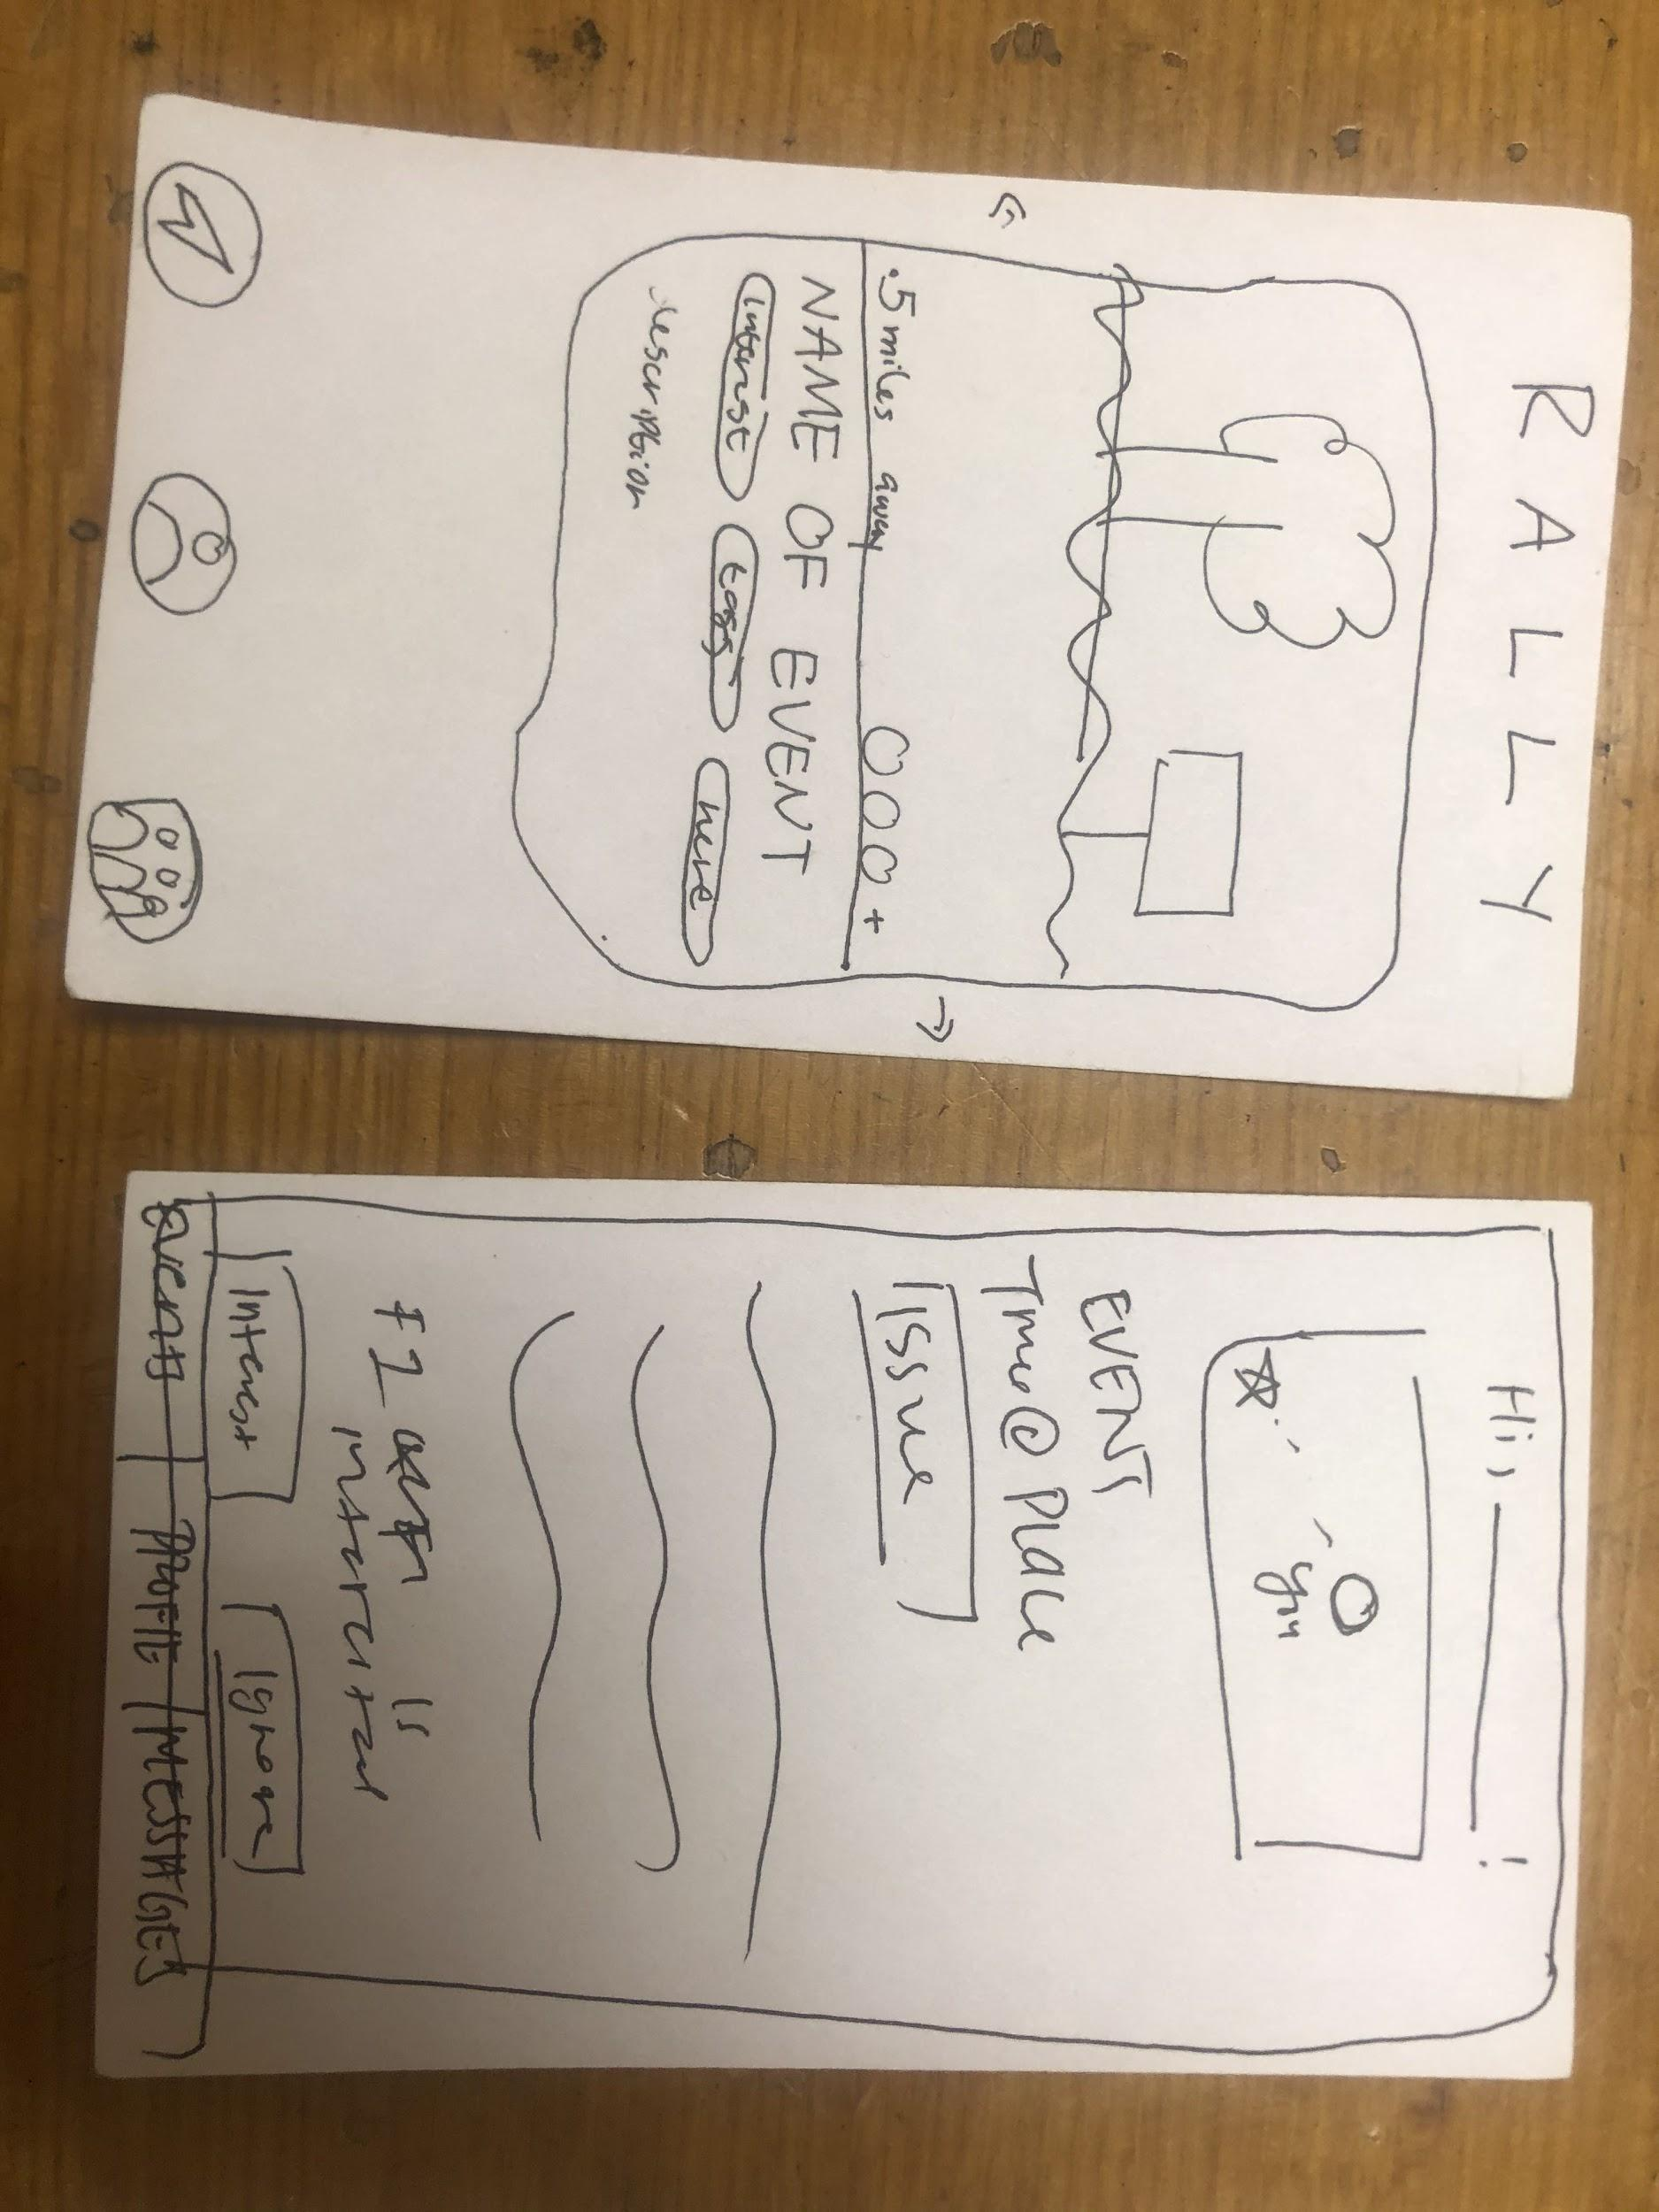 RALLY
.5 miles away
+
NAME OF EVENT
interest tags here
description
Hi, !
you
EVENT
Time @ Place
Issue
is
Interest Ignore
EVENTS PROFILE MESSAGES